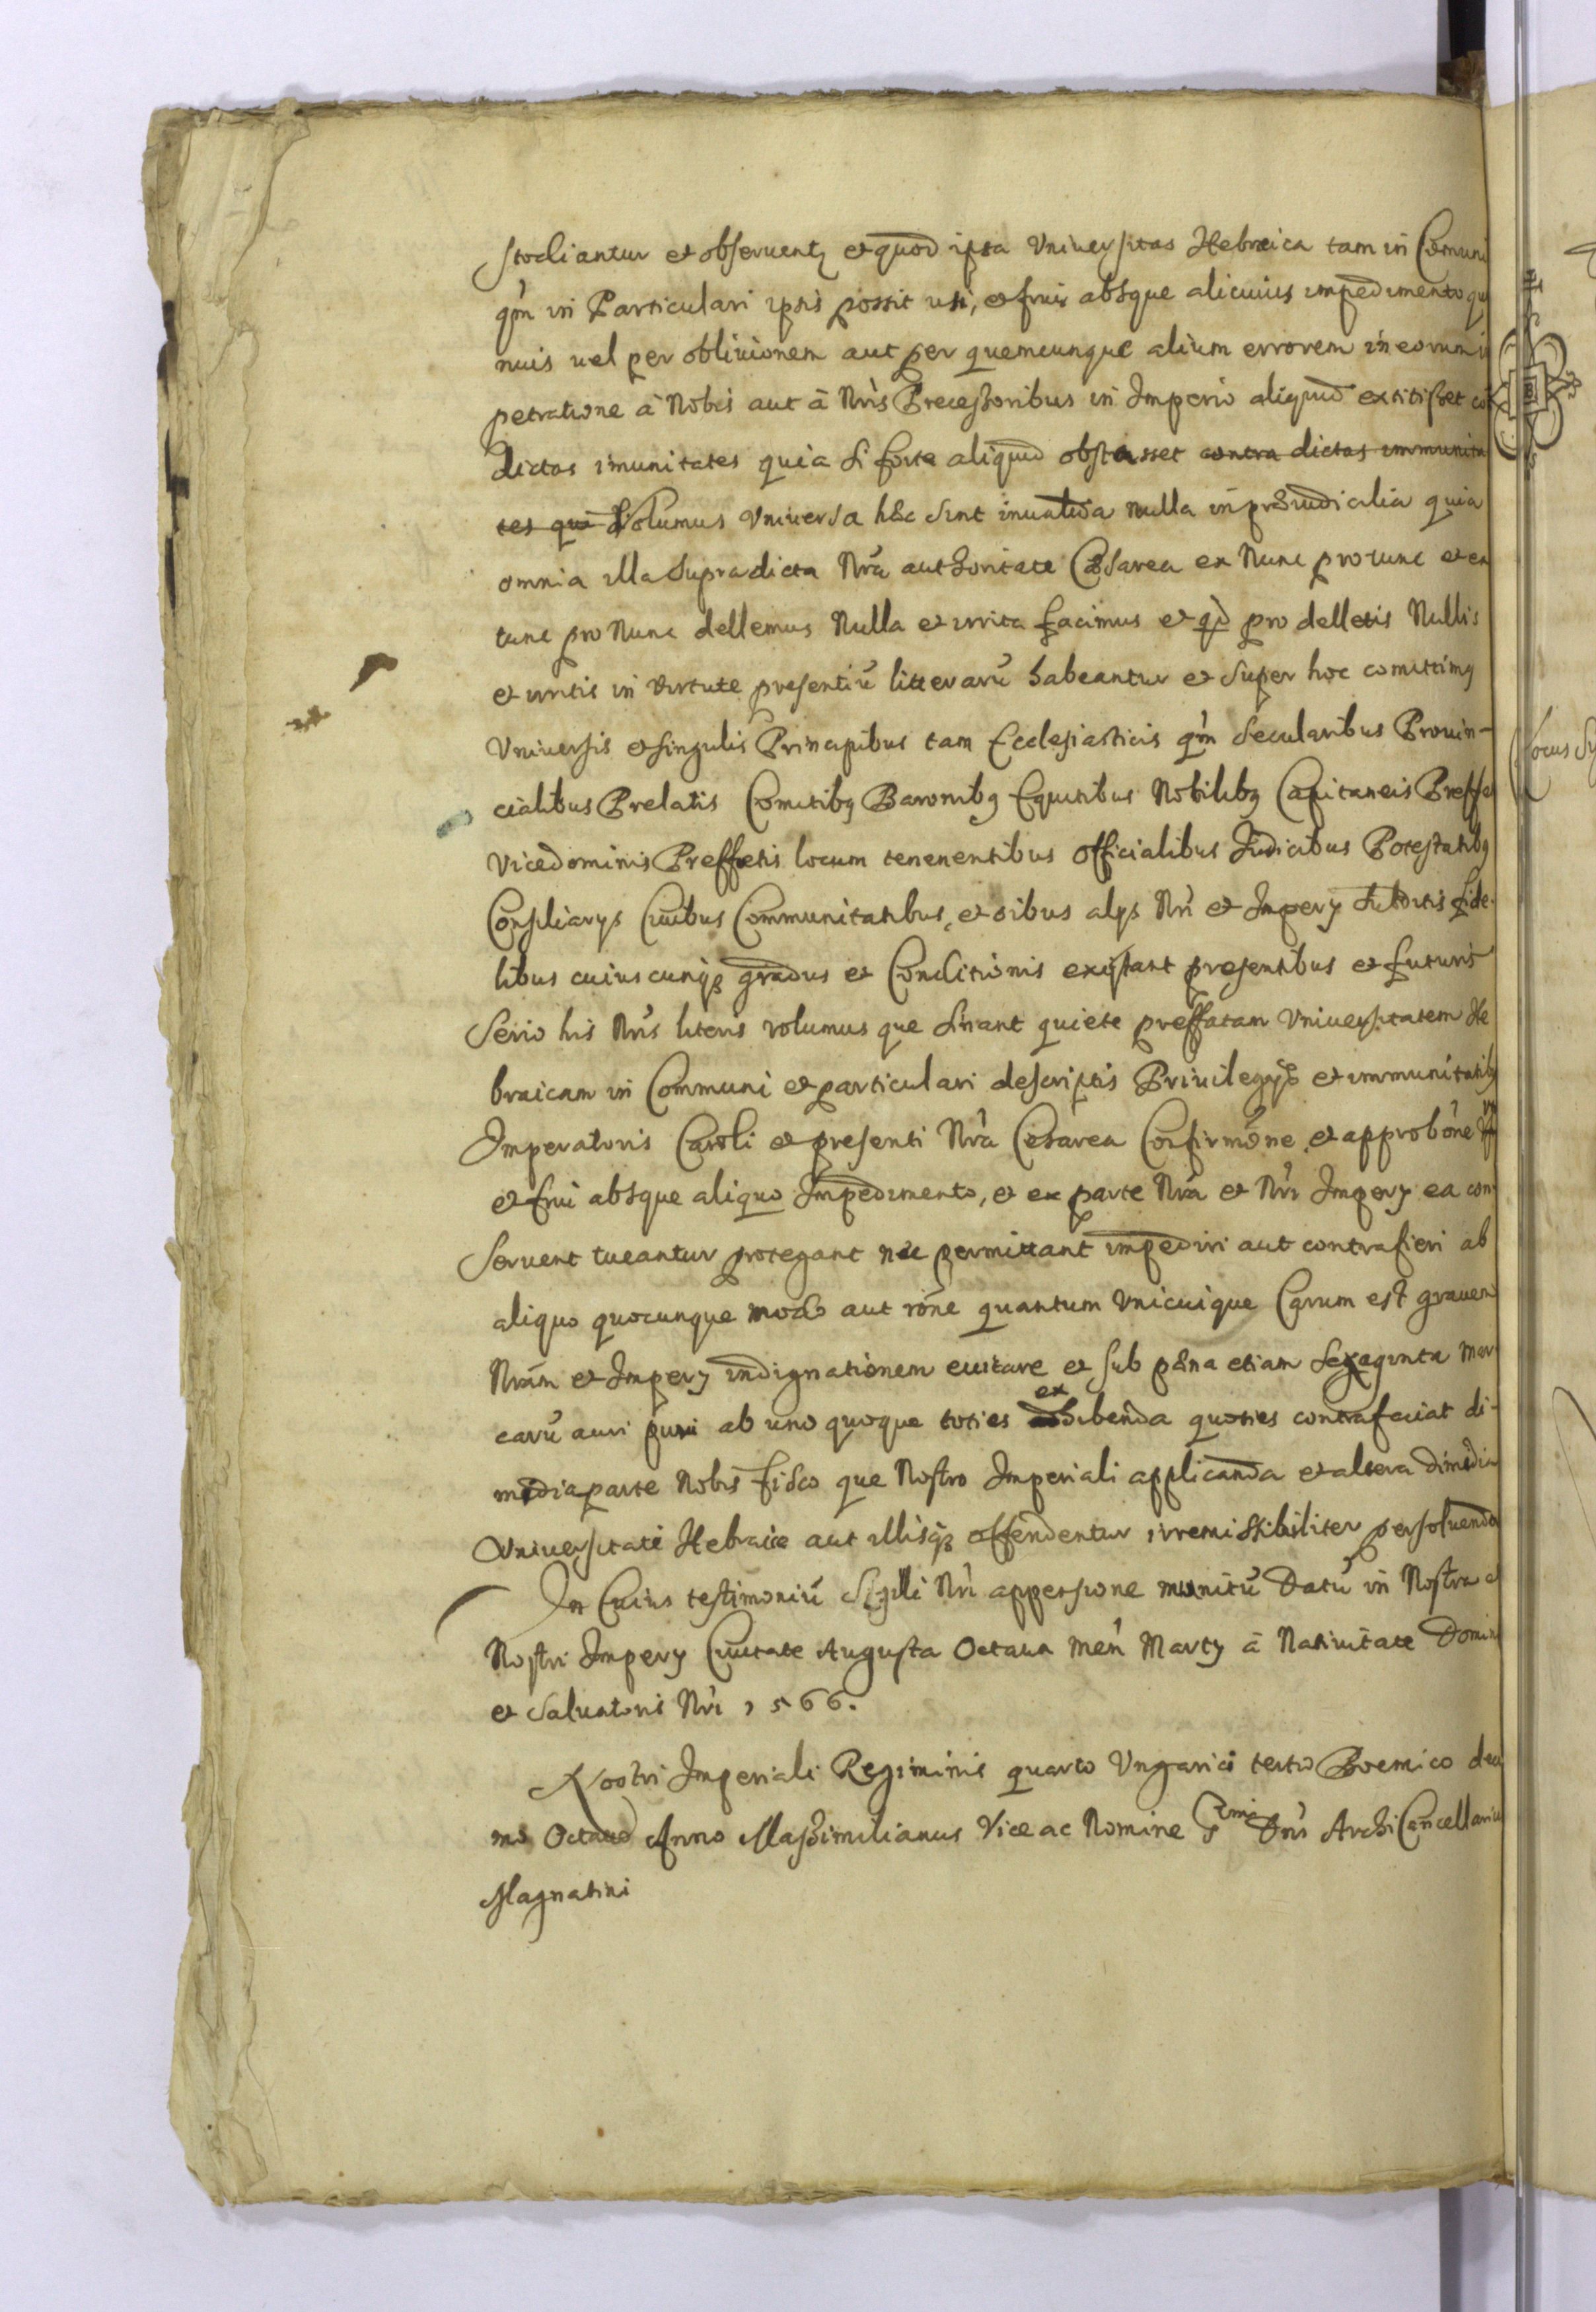 stodiantur et obseruent₉ et quod ipsa Vniuersitas Hebraica tam in Comuni
qm̃ in Particulari ipsis possit uti, et frui absque alicuius impedimento
nuis uel per obliuionem aut per quemcunque alium errorem in eorum
petratione à Nobis aut à Nr̃is Precessoribus in Imperio aliquid extitisset
dictas imunitates quia si forte aliquid obstasset contra dictas immunita
tes qui Volumus Vniuersa hæc sint inualida nulla inpræiudicialia quia
omnia illa supradicta Nr̃a authoritate Cæsarea ex Nunc pro tunc et ex
tunc pro Nunc dellemus Nulla et irrita facimus et qd̀ pro delletis Nullis
et irritis in Virtute presentiũ litterarũ habeantur et super hoc comittimꝰ
Vniuersis et singulis Principibus tam Ecclesiasticis qm̃ Secularibus Prouin-
cialibus Prelatis Comitibꝰ Baronibꝰ Equitibus Nobilibꝰ Capitaneis
Vicedominis Preffetis locum tenenentibus Officialibus Iudicibus Potestatibꝰ
Consiliarys Ciuibus Communitatibus, et oibus alys Nr̃i et Impery Subditis fide-
libus cuiuscunqꝫ gradus et Conditionis existant presentibus et futuris
Serio his Nr̃is literis volumus que sinant quiete preffatam Vniuersitatem He
braicam in Communi et particulari descriptis Priuilegys et immunitatibꝰ
Imperatoris Caroli et presenti Nr̃a Cesarea Confirmõne et approbõne
et frui absque aliquo Impedimento, et ex parte Nr̃a et Nr̃i Impery ea con-
seruent tueantur protegant nec permittant impediri aut contrafieri ab
aliquo quocunque modo aut rõne quantum Vnicuique Carum est grauem
Nr̃am et Impery indignationem euitare et sub pæna etiam Sexaginta Mar
carũ auri puri ab uno quoque toties exhibenda quoties contrafaciat di-
midia parte Nobis fisco que Nostro Imperiali applicanda et altera dimidia
Vniuersitati Hebraice aut illis qꝫ offendentur irremissibiliter persoluenda
In Cuius testimoniũ Sigilli Nr̃i appensione munitũ Datũ in Nostra
Nostri Impery Ciuitate Augusta Octaua Men̄ Marty à Natiuitate Domini
et Saluatoris Nr̃i 1566.
Nostri Imperiali Regiminis quarto Vngarici tertio Boemico deci
mo Octauo Anno Massimilianus Vice ac Nomine Dnĩ Archi Cancellarius
Magnatini